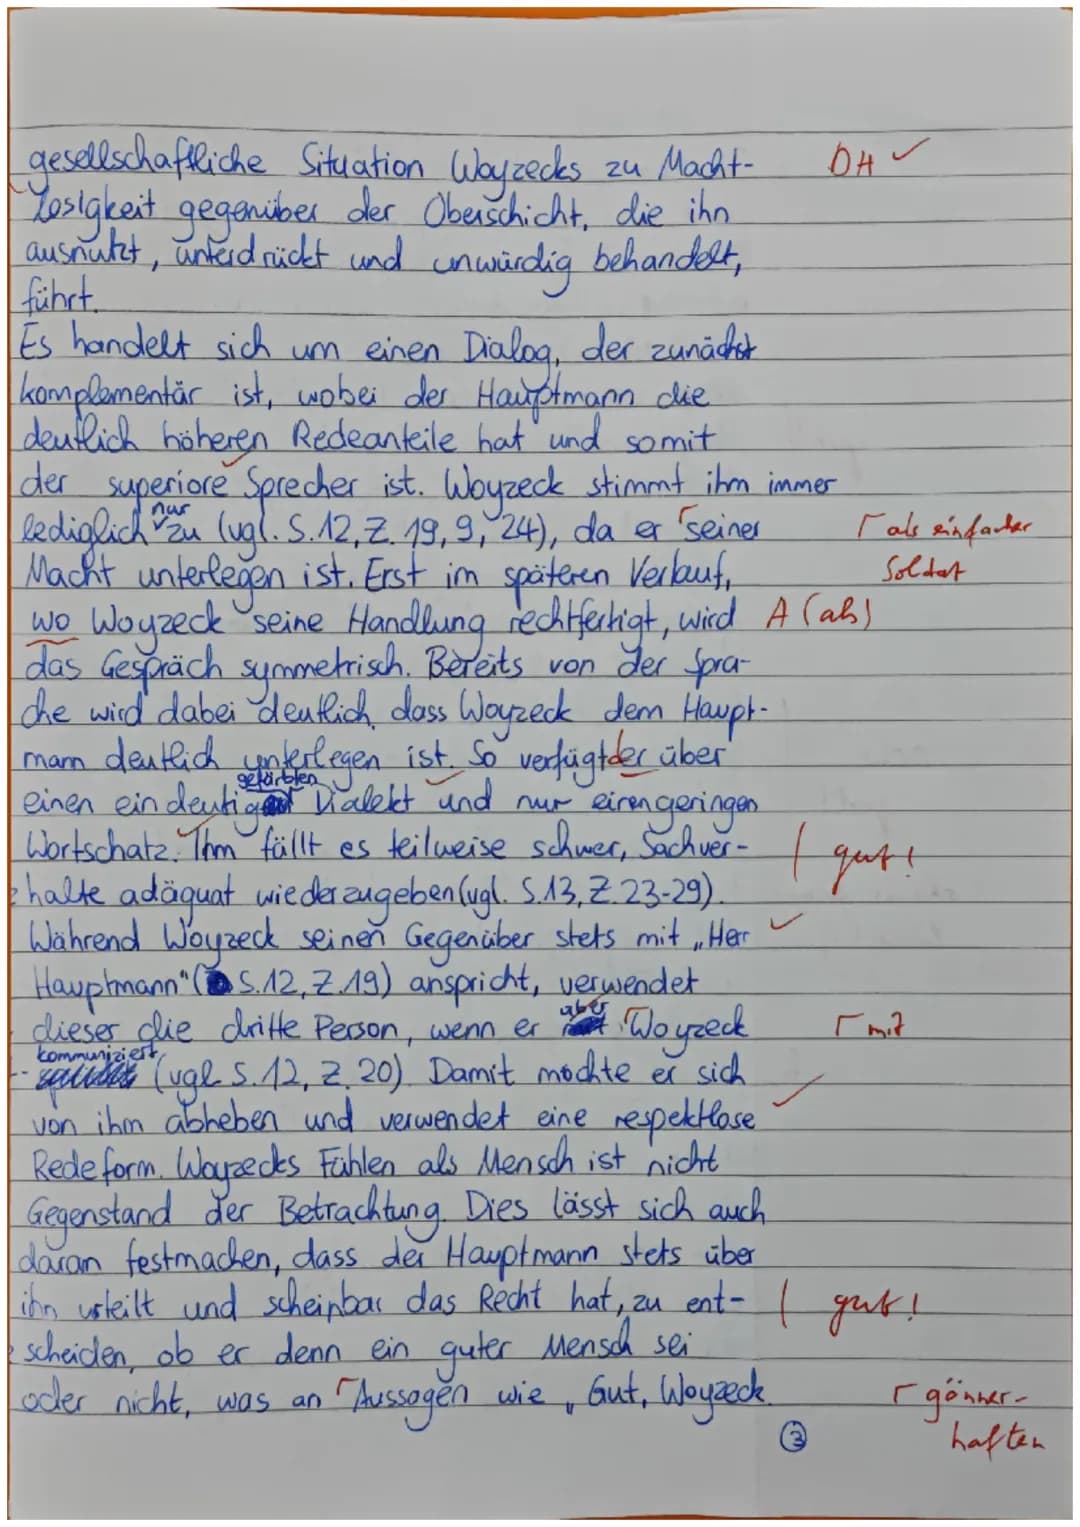 gesellschaftliche Situation Woyzecks zu Macht- DH ✓
losigkeit gegenüber der Oberschicht, die ihn
ausnutzt, unterdrückt und unwürdig behandelt,
führt.
Es handelt sich um einen Dialog, der zunächst
komplementär ist, wobei der Hauptmann die
deutlich höheren Redeanteile hat und somit
der superiore Sprecher ist. Woyzeck stimmt ihm immer
nur
lediglich zu (vgl. S.12, Z. 19, 9, 24), da er seiner Γ als einfacher
Macht unterlegen ist. Erst im späteren Verlauf, Soldat
wo Woyzeck seine Handlung rechtfertigt, wird A (als)
das Gespräch symmetrisch. Bereits von der Spra-
che wird dabei deutlich, dass Woyzeck dem Haupt-
mann deutlich unterlegen ist. So verfügt der über
gefärbten
einen eindeutig Dialekt und nur einen geringen
Wortschatz. Ihm fällt es teilweise schwer, Sachver- | gut!
halte adäquat wiederzugeben (vgl. S.13, Z.23-29).
Während Woyzeck seinen Gegenüber stets mit „Herr ✓
Hauptmann" (S.12, Z.19) anspricht, verwendet
aber
dieser die dritte Person, wenn er Woyzeck Γ mit
kommuniziert
(vgl. S.12, Z.20). Damit möchte er sich
von ihm abheben und verwendet eine respektlose ✓
Redeform. Woyzecks Fühlen als Mensch ist nicht
Gegenstand der Betrachtung. Dies lässt sich auch
daran festmachen, dass der Hauptmann stets über
ihn urteilt und scheinbar das Recht hat, zu ent- | gut!
scheiden, ob er denn ein guter Mensch sei
oder nicht, was an Aussagen wie „Gut, Woyzeck. Γ gönner-
③ haften